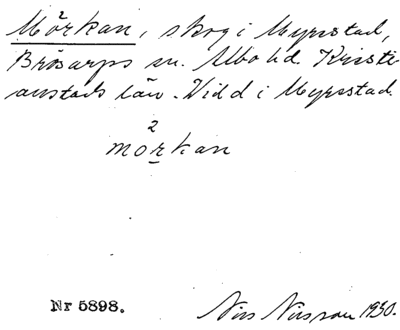 Mörkan, skog i Myrstad,
Brösarps sn. Albo hd. Kristi-
anstads län. Vidd i Myrsstad.
2
morkan
Nr 5898.
Nils Nilsson 1930.